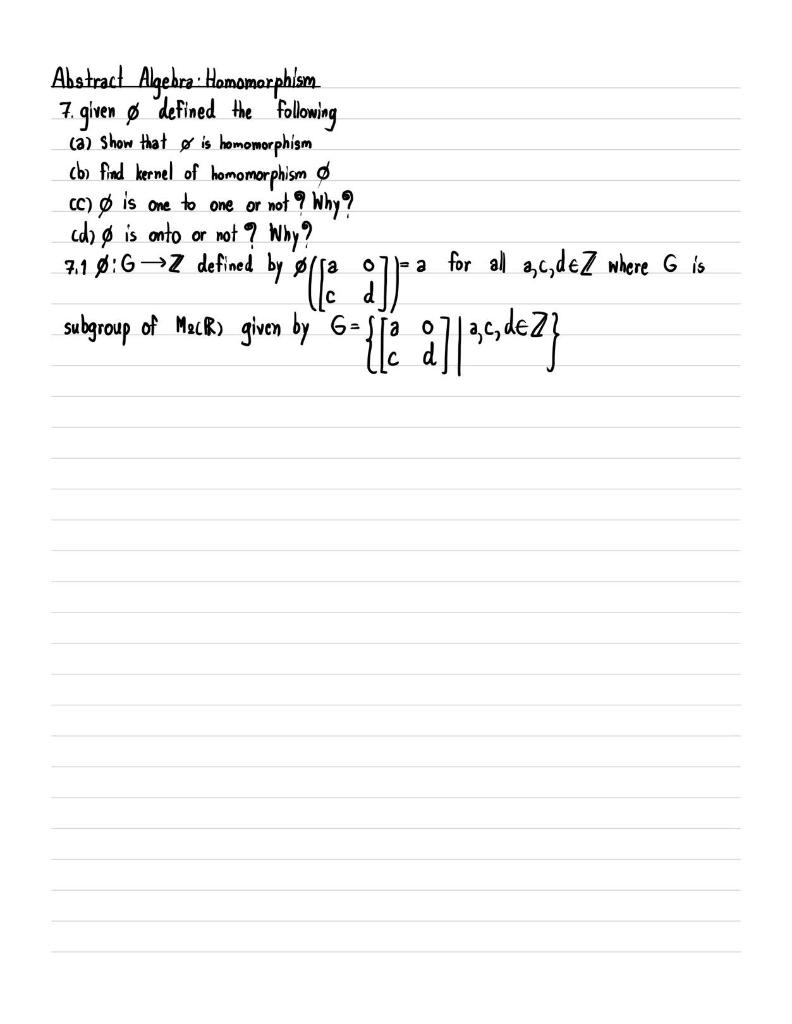 Abstract Algebra: Homomorphism
7. given ø defined the following
(a) Show that ø is homomorphism
(b) find kernel of homomorphism ø
(c) ø is one to one or not? Why?
(d) ø is onto or not? Why?
7.1 ø: G → ℤ defined by ø([a 0; c d]) = a for all a,c,d∈ℤ where G is
subgroup of M₂(ℝ) given by G = {[a 0; c d] | a,c,d∈ℤ}